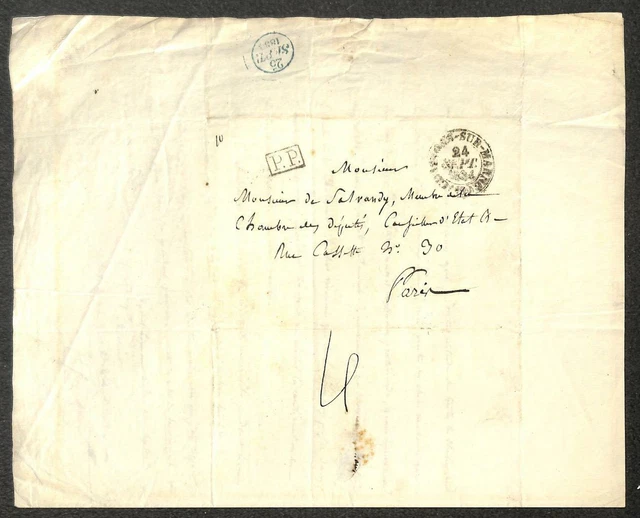 25
SEPT.
1834
10
CHALONS-SUR-MARNE
24
SEPT.
1834
P.P.
Monsieur
Monsieur de Salvandy, Membre de la
Chambre des députés, Conseiller d'Etat &
Rue Cassette No. 30
Paris